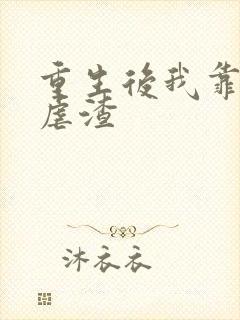 重生後我靠
虐渣
沐衣衣